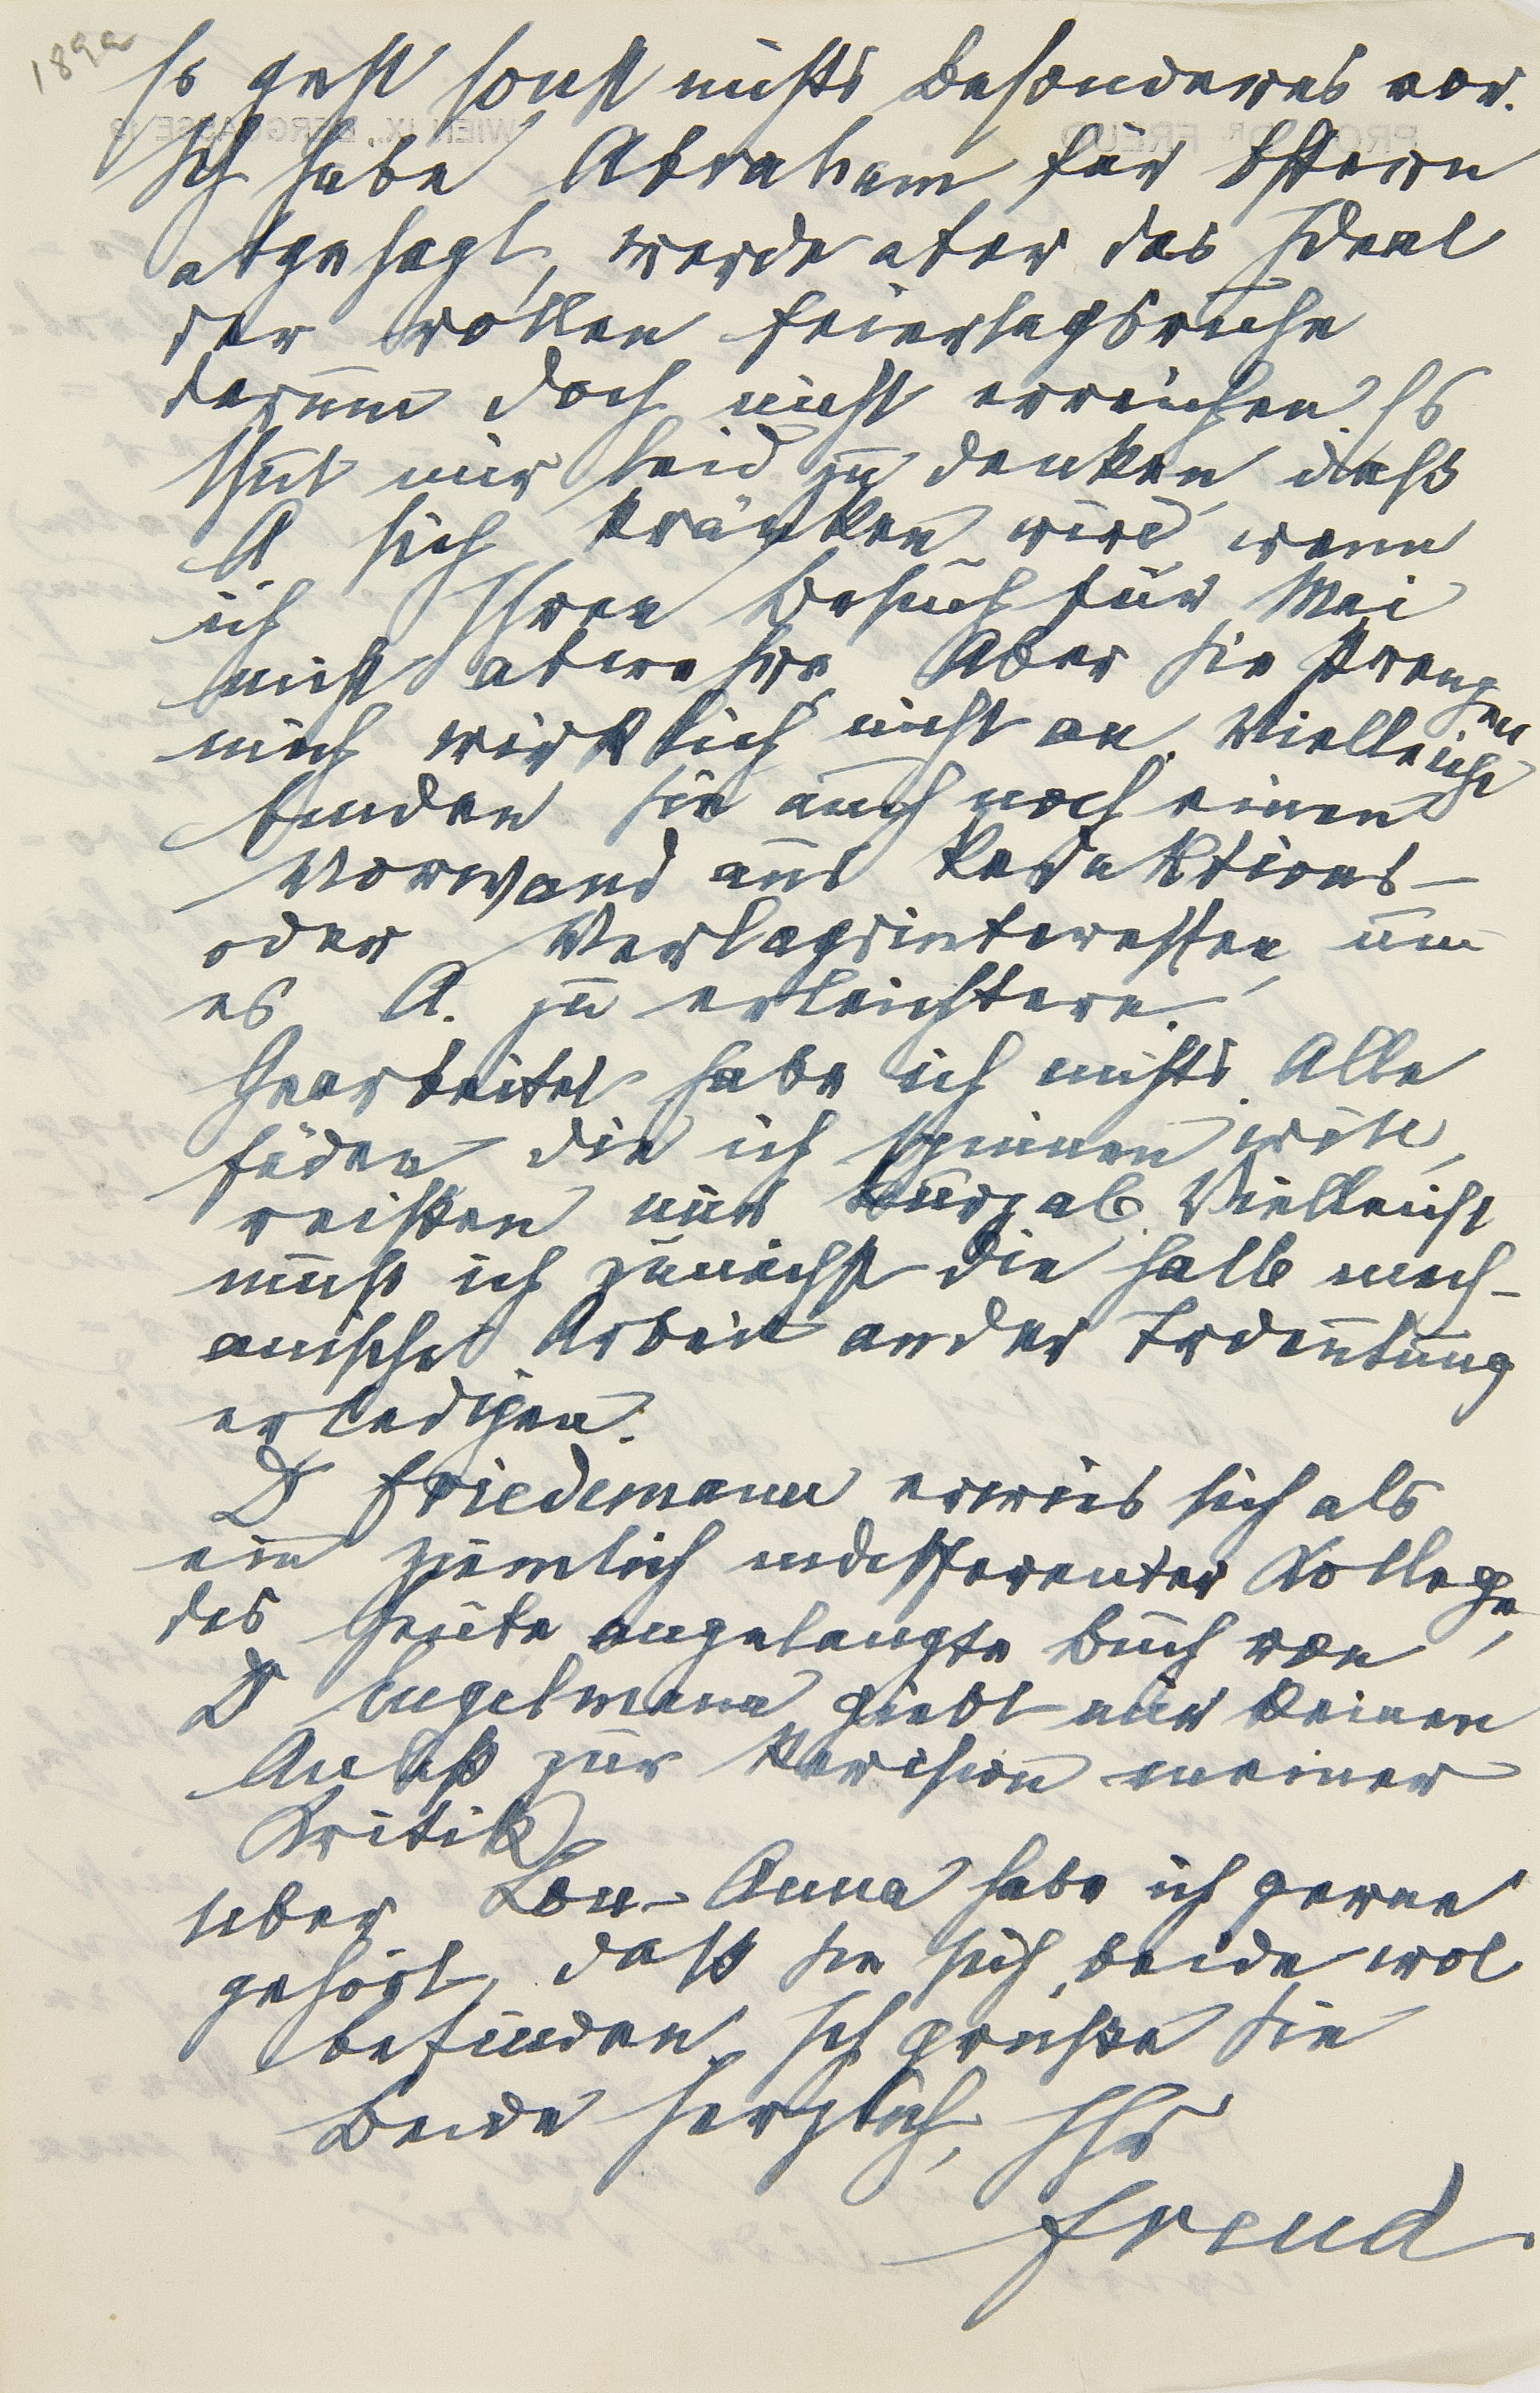 189a
Es geht sonst nichts Besonderes vor.
Ich habe Abraham für Ostern
abgesagt, werde aber das Ideal
der vollen Feiertagsruhe
darum doch nicht erreichen. Es
thut mir leid zu denken, daß
A sich kränken wird, wenn
ich Ihren Besuch für Mai
nicht abwehre. Aber Sie strengen
mich wirklich nicht an. Vielleicht
finden Sie auch noch einen
Vorwand aus Redaktions-
oder Verlagsinteressen, um
es A. zu erleichtern.
Gearbeitet habe ich nichts. Alle
Fäden die ich spinnen will,
reißen mir kurz ab. Vielleicht
muß ich zunächst die halb mech-
anische Arbeit an der Trdeutung
erledigen.
Dr Friedemann erwies sich als
ein ziemlich indifferenter Kollege,
das heute angelangte Buch von
Dr Engelmann giebt mir keinen
Anlaß zur Revision meiner
Kritik.
Über Lou-Anna habe ich gerne
gehört, daß sie sich beide wol
befinden. Ich grüße Sie
beide herzlich, Ihr
Freud